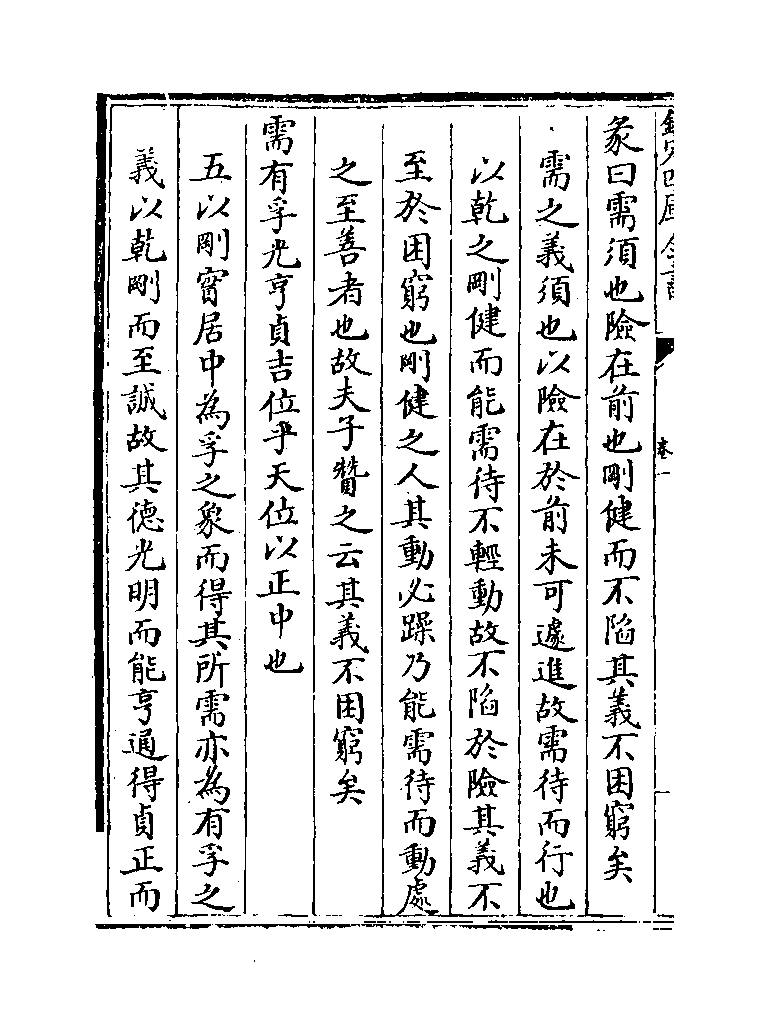 彖曰需須也險在前也剛健而不陷其義不困窮矣
需之義須也以險在於前未可遽進故需待而行也
以乾之剛健而能需待不輕動故不陷於險其義不
至於困窮也剛健之人其動必躁乃能需待而動處
之至善者也故夫子贊之云其義不困窮矣
需有孚光亨貞吉位乎天位以正中也
五以剛實居中為孚之象而得其所需亦為有孚之
義以乾剛而至誠故其德光明而能亨通得貞正而